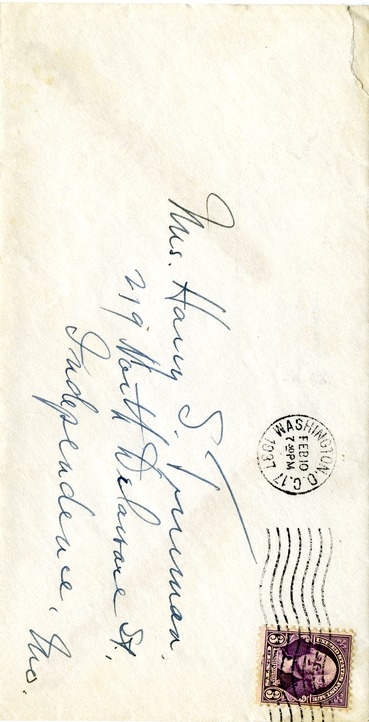 WASHINGTON, D.C. 17 1937
FEB 10
7 30 PM
3 3
Mrs. Harry S. Truman.
219 North Delaware St.
Independence, Mo.